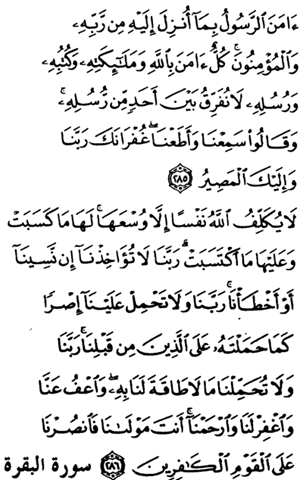 ءَامَنَ ٱلرَّسُولُ بِمَآ أُنزِلَ إِلَيْهِ مِن رَّبِّهِۦ
وَٱلْمُؤْمِنُونَ ۚ كُلٌّ ءَامَنَ بِٱللَّهِ وَمَلَـٰٓئِكَتِهِۦ وَكُتُبِهِۦ
وَرُسُلِهِۦ لَا نُفَرِّقُ بَيْنَ أَحَدٍ مِّن رُّسُلِهِۦ ۚ
وَقَالُوا۟ سَمِعْنَا وَأَطَعْنَا ۖ غُفْرَانَكَ رَبَّنَا
وَإِلَيْكَ ٱلْمَصِيرُ ٢٨٥
لَا يُكَلِّفُ ٱللَّهُ نَفْسًا إِلَّا وُسْعَهَا ۚ لَهَا مَا كَسَبَتْ
وَعَلَيْهَا مَا ٱكْتَسَبَتْ ۗ رَبَّنَا لَا تُؤَاخِذْنَآ إِن نَّسِينَآ
أَوْ أَخْطَأْنَا ۚ رَبَّنَا وَلَا تَحْمِلْ عَلَيْنَآ إِصْرًا
كَمَا حَمَلْتَهُۥ عَلَى ٱلَّذِينَ مِن قَبْلِنَا ۚ رَبَّنَا
وَلَا تُحَمِّلْنَا مَا لَا طَاقَةَ لَنَا بِهِۦ ۖ وَٱعْفُ عَنَّا
وَٱغْفِرْ لَنَا وَٱرْحَمْنَآ ۚ أَنتَ مَوْلَىٰنَا فَٱنصُرْنَا
عَلَى ٱلْقَوْمِ ٱلْكَـٰفِرِينَ ٢٨٦ سورة البقرة